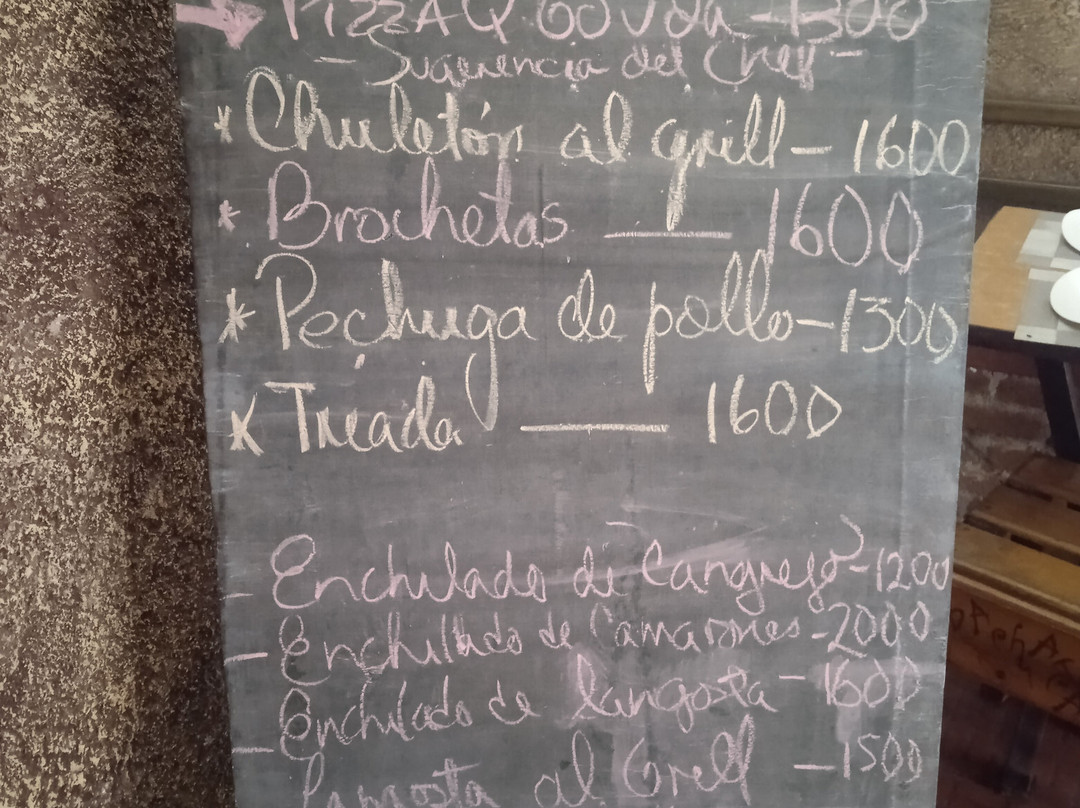 → PIZZA Q. GOUDA - 1300
- Sugerencia del Chef -
* Chuletón al grill - 1600
* Brochetas — 1600
* Pechuga de pollo - 1300
* Triada — 1600
- Enchilado de Cangrejo - 1200
- Enchillado de Camarones - 2000
Enchilado de langosta - 1600
- Langosta al Grell - 1500